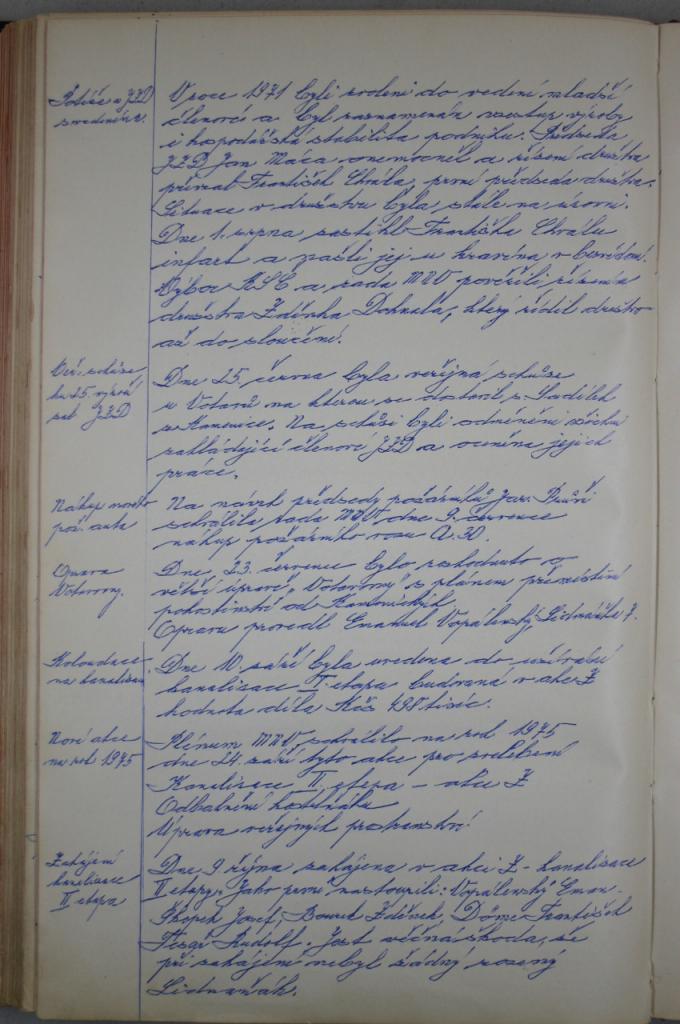 Potíže v JZD
V roce 1971 byli zvoleni do vedení mladší
členové a byl zaznamenán vzestup výroby
i hospodářská stabilita podniku. Předseda
JZD Jan Máca onemocněl a řízení družstva
převzal František Chvála, první předseda družstva.
Situace v družstvu byla stále na úrovni.
Dne 1. srpna zastihl Františka Chválu
infart a našli jej u kravína v bezvědomí.
Výbor KSČ a rada MNV pověřili řízením
družstva Zdeňka Dohnala, který řídil družstvo
až do sloučení.
Veř. schůze
ku 25. výročí
zal. JZD
Dne 25. června byla veřejná schůze
u Votavů na kterou se dostavil s. Sadílek
z Kamenice. Na schůzi byli odměněni všichni
zakládající členové JZD a oceněna jejich
práce.
Nákup nového
pož. auta
Na návrh předsedy požárníků Jar.
schválila rada MNV dne 9. července
nákup požárního vozu A 30.
Oprava
Votavovny.
Dne 23. července bylo rozhodnuto o
větší úpravě "Votavovny" s plánem přemístění
pohostinství od
Opravu provedl Emanuel Vopálenský, Lidmaňka 7.
Kolaudace
na kanalisaci
Dne 10. září byla uvedena do užívání
kanalisace I. etapa budovaná v akci Z
hodnota díla Kčs 498 tisíc.
Nové akce
na rok 1975
Plénum MNV schválilo na rok 1975
dne 24. září tyto akce pro zvelebení
Kanalisace II. etapa – akce Z
Odbahnění
Úprava veřejných prostranství
Zahájení
kanalisace
II etapa
Dne 9. října zahájena v akci Z - kanalisace
II etapy. Jako první nastoupili: Vopálenský Eman.
Skopek Josef, Zdeněk, František
Rudolf. Jest věčná škoda, že
při zahájení nebyl žádný rozený
Lidmaňák.